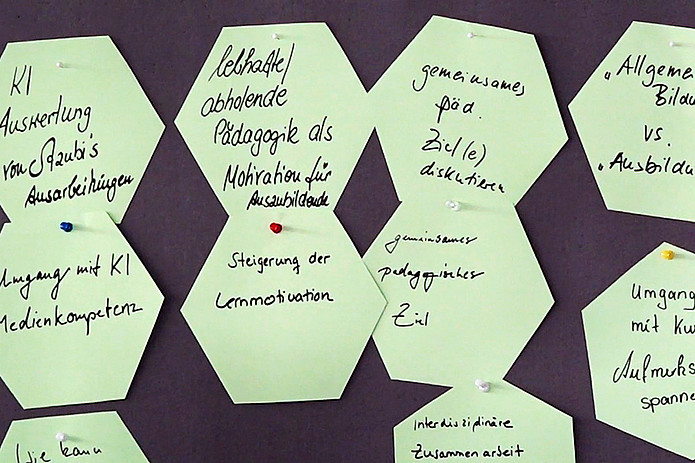 KI
Auswertung
von Azubi's
Ausarbeitungen
lebhafte/
abholende
Pädagogik als
Motivation für
Auszubildende
gemeinsames
päd.
Ziel(e)
diskutieren
"Allgemei
Bildu
vs.
"Ausbildu
Umgang mit KI
Medienkompetenz
Steigerung der
Lernmotivation
gemeinsames
pädagogisches
Ziel
Umgang
mit Ku
Aufmerks
spanne
Wie kann
Interdisziplinäre
Zusammenarbeit